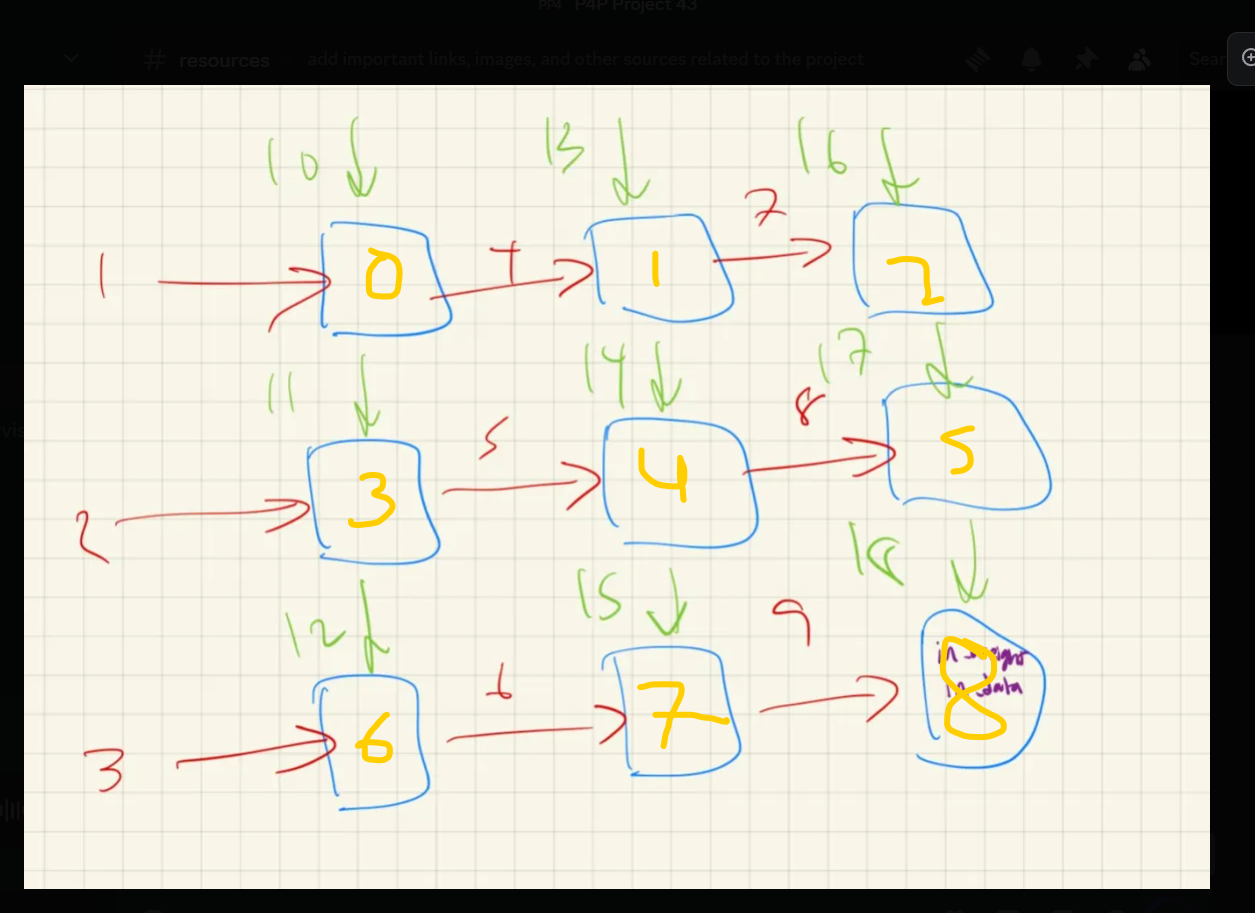 PP4 P4P Project 43
# resources add important links, images, and other sources related to the project Sear
10 13 16
1 0 4 1 7 2
11 14 17
2 3 5 4 8 5
12 15 18
3 6 6 7 9 8
in
in data